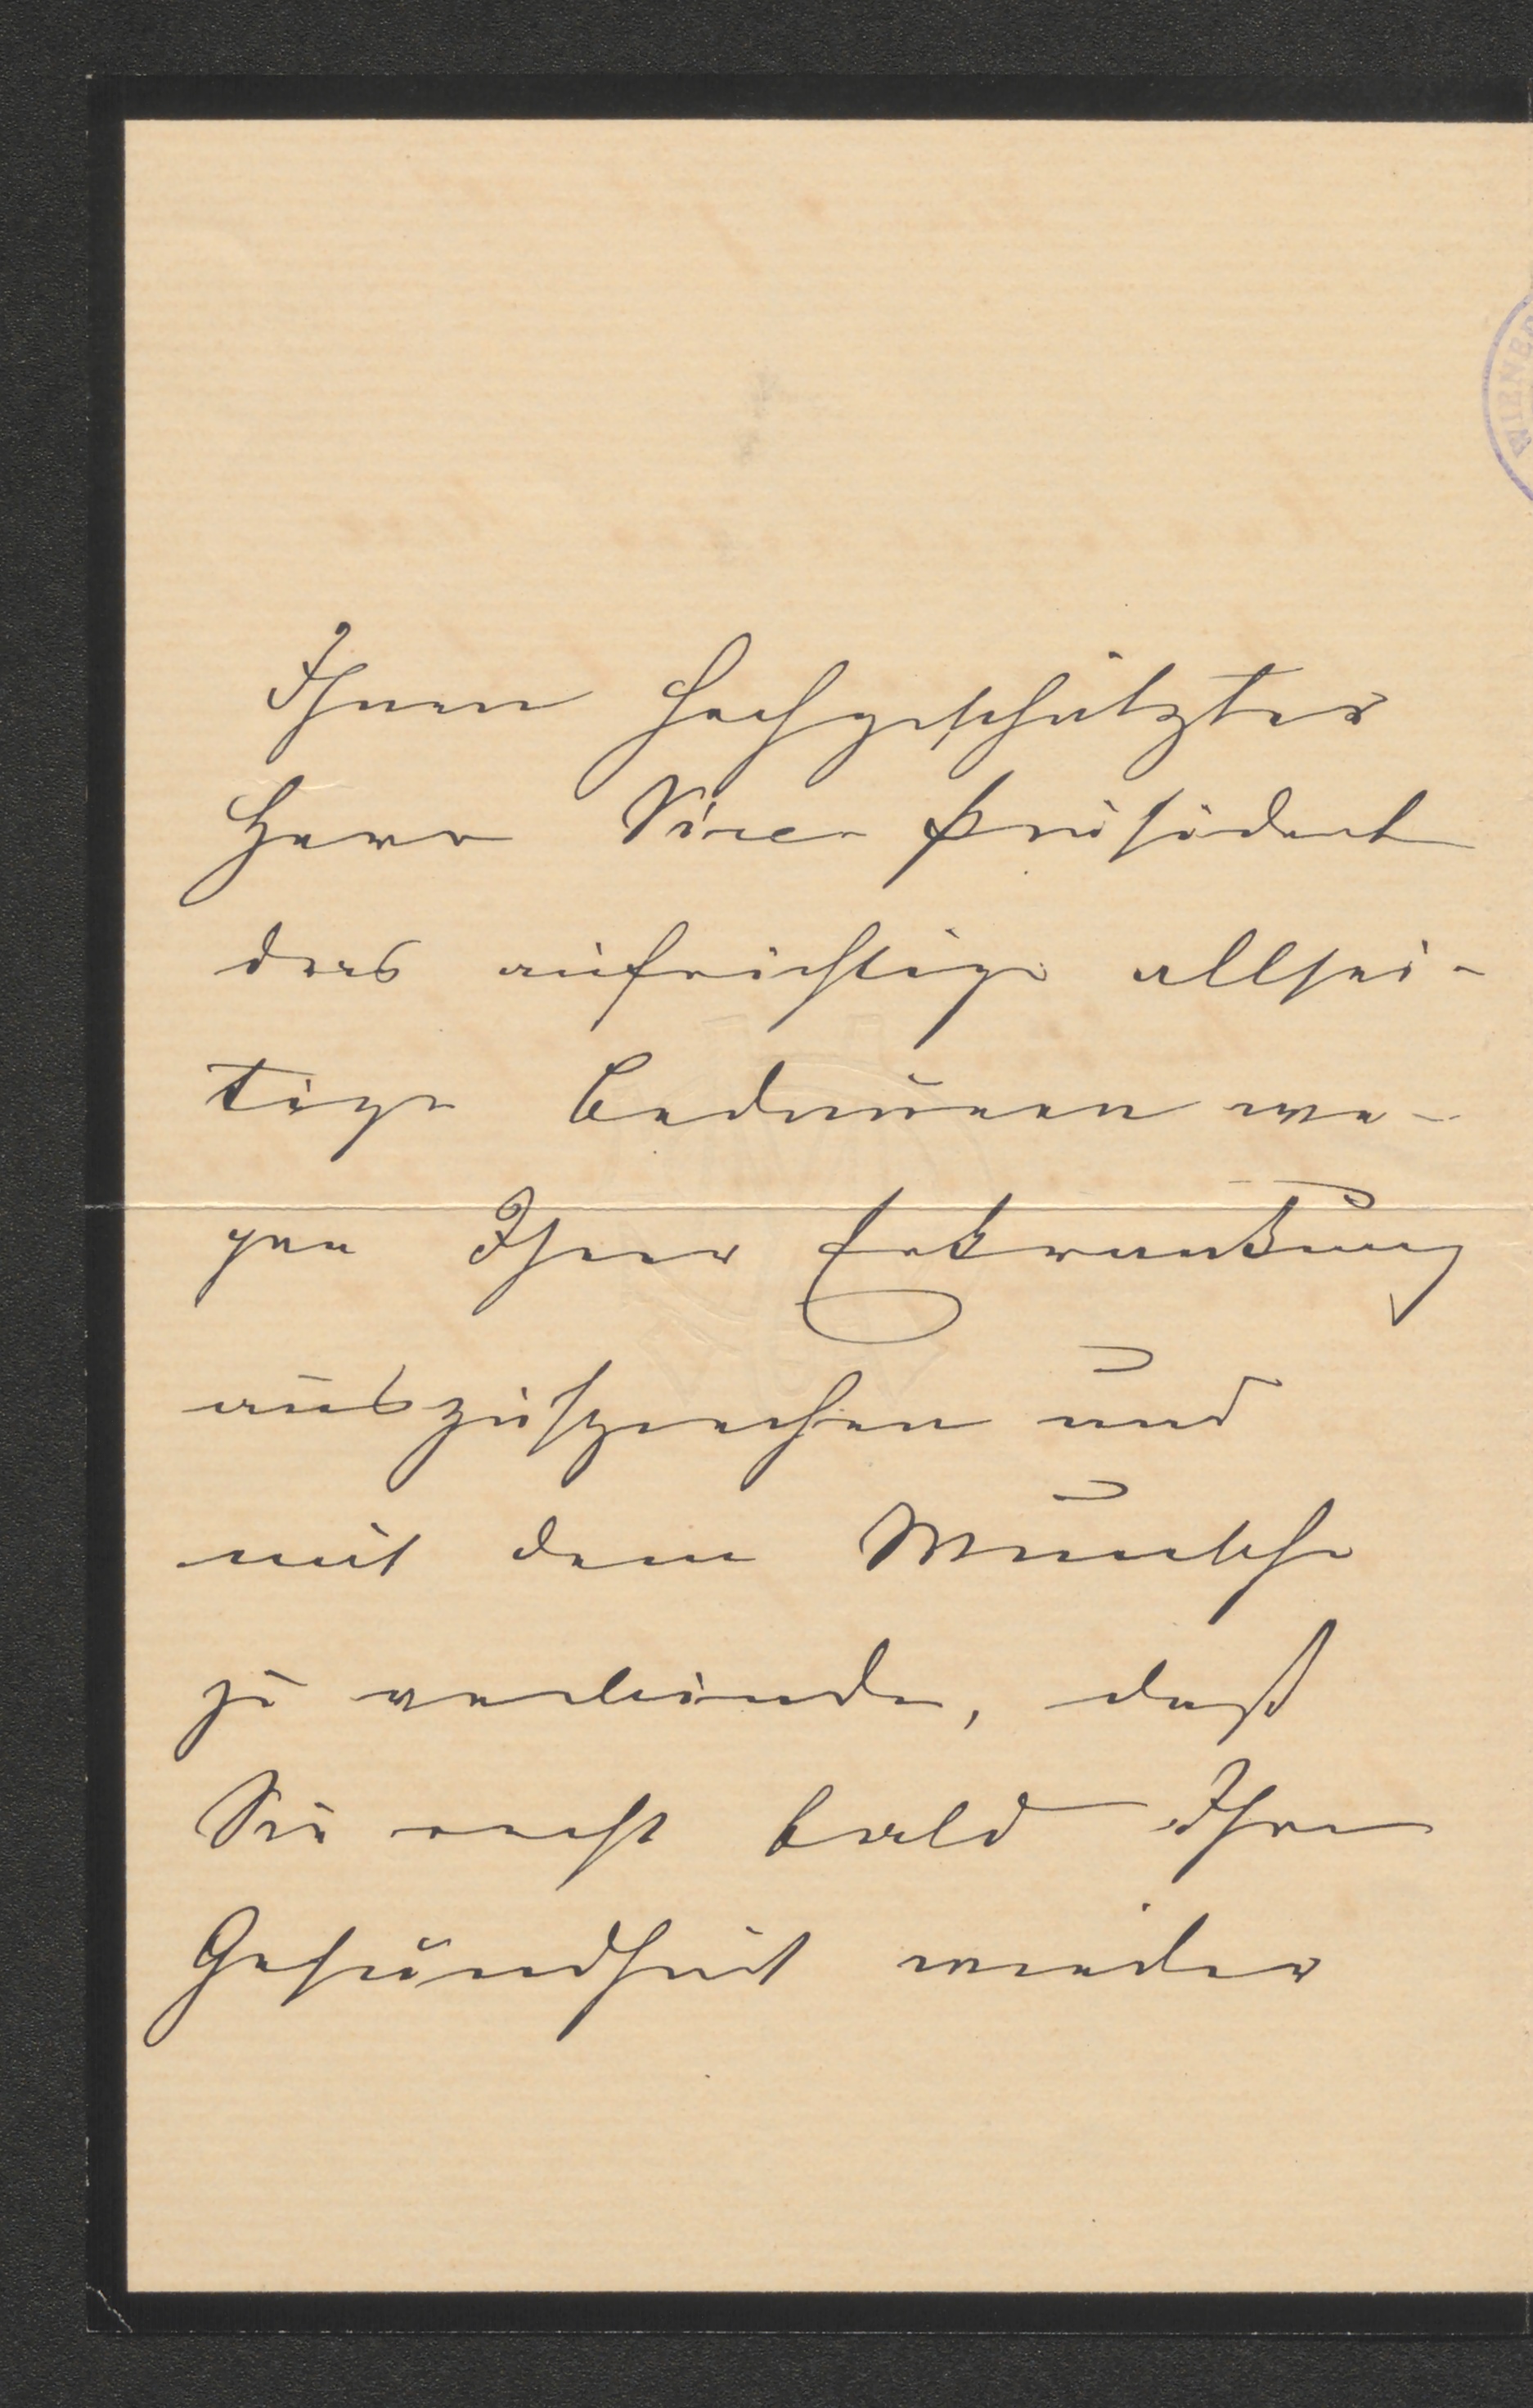 WIENER
Ihnen hochgeschätzter
Herr Vice-Präsident
das aufrichtige allsei-
tige Bedauern we-
gen Ihrer Erkrankung
auszusprechen und
mit dem Wunsche
zu verbinden, daß
Sie recht bald Ihre
Gesundheit wieder